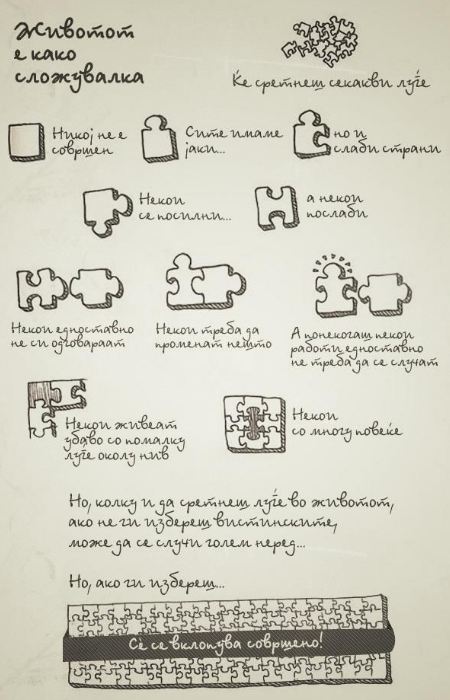 Животот
е како
сложувалка
Ќе сретнеш секакви луѓе
Никој не е
совршен
Сите имаме
јаки...
но и
слаби страни
Некои
се посилни...
а некои
послаби
Некои едноставно
не си одговараат
Некои треба да
променат нешто
А понекогаш некои
работи едноставно
не треба да се случат
Некои живеат
убаво со помалку
луѓе околу нив
Некои
со многу повеќе
Но, колку и да сретнеш луѓе во животот,
ако не ги избереш вистинските,
може да се случи голем неред...
Но, ако ги избереш...
Сѐ се вклопува совршено!